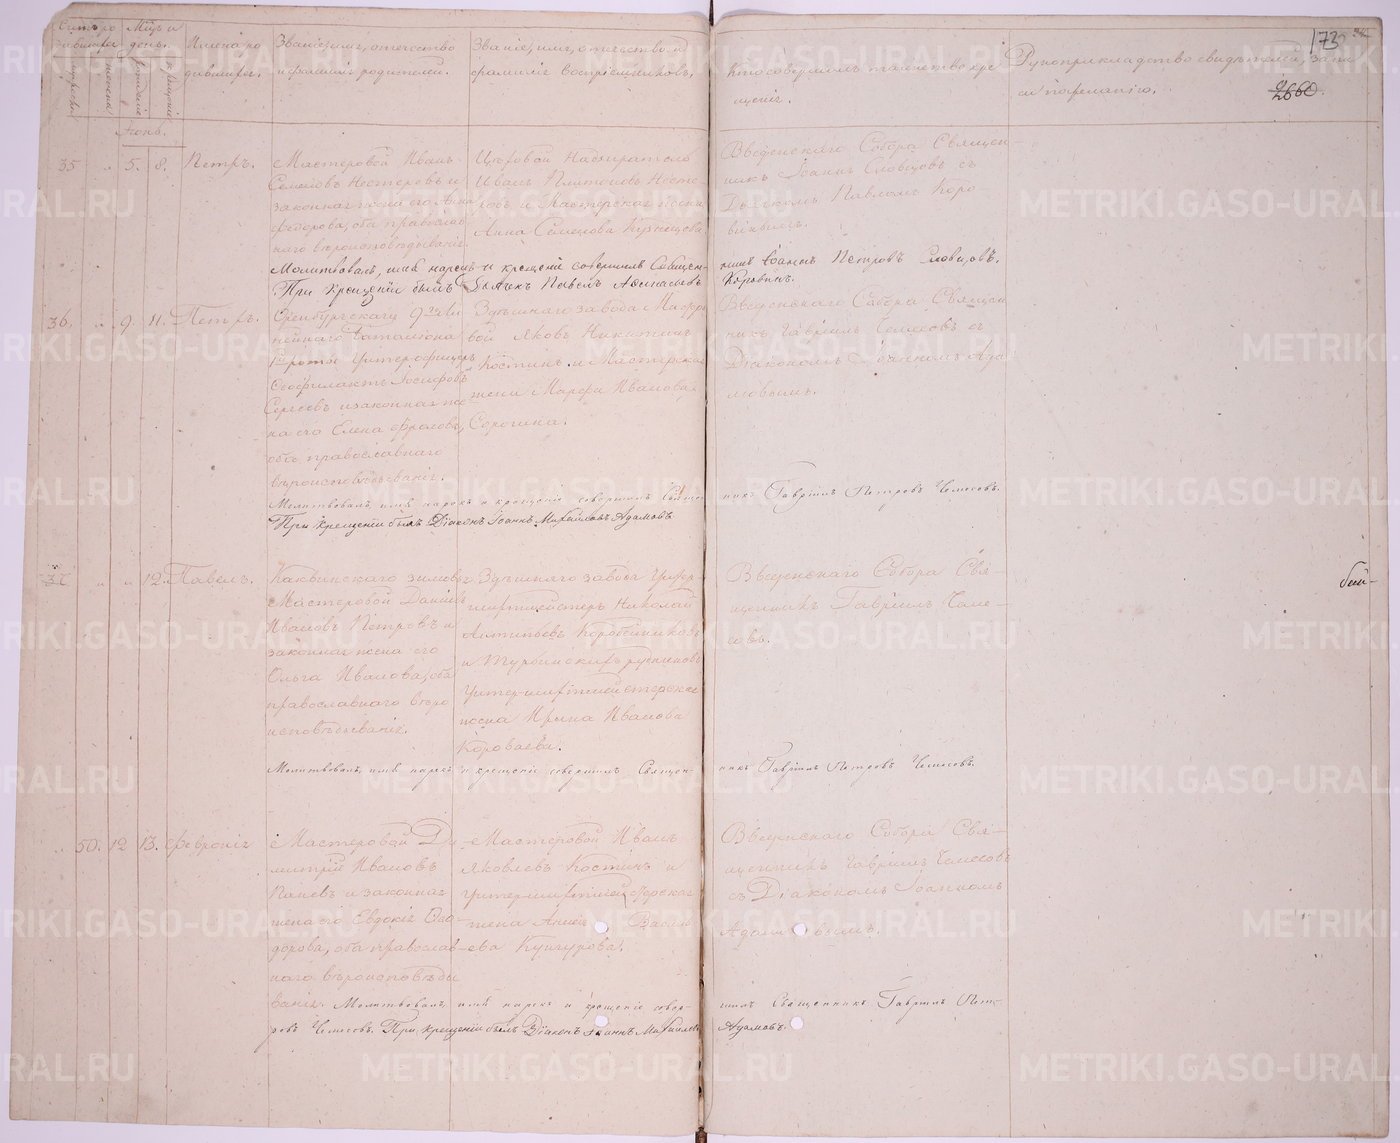 173
2660.
Счетъ ро
Мѣц. и
день.
Имена ро
дившихъ.
Званіе, имя, отчество
и фамилія родителей.
Званіе, имя, отчество и
фамилія воспріемниковъ.
Кто совершалъ таинство кре
щенія.
Рукоприкладство свидѣтелей, запи
си по желанію.
Іюнь.
35 5. 8. Петръ.
Мастеровой Иванъ
Семеновъ Нестеровъ и
законная жена его Анна
Федорова, оба православ
наго вѣроисповѣданія.
Цеховой Надзиратель
Иванъ Платоновъ Несте
Анна Семенова Кузнецова.
Введенскаго Собора Священ
никъ Іоаннъ Словцовъ съ
Дьячкомъ Павломъ Коро
Молитвовалъ, имя нарекъ и крещеніе совершилъ Священ-
никъ Іоаннъ Петровъ Словцовъ.
При крещеніи былъ Дьячекъ Павелъ Афанасьевъ
Коровинъ.
36. 9. 11. Петръ.
Оренбургскаго 9
нейнаго Баталіона
роты Унтерофицеръ
Феофилактъ Іосифовъ
Сергеевъ и законная же
на его Елена Фролова,
оба православнаго
вѣроисповѣданія.
Здѣшняго завода Масте
вой Яковъ Никитинъ
Костинъ и Мастерская
жена Марфа Иванова
Сорогина.
Введенскаго Собора Священ
никъ Гавріилъ Чемесовъ съ
Діакономъ Іоанномъ Ада
мовымъ.
Молитвовалъ, имя нарекъ и крещеніе совершилъ Священ
никъ Гавріилъ Петровъ Чемесовъ.
При крещеніи былъ Діаконъ Іоаннъ Михайловъ Адамовъ
37 12. Павелъ.
Мастеровой Данилъ
Ивановъ Петровъ и
законная жена его
Ольга Иванова, оба
православнаго вѣро
исповѣданія.
Здѣшняго завода Унтер-
шихтмейстеръ Николай
Антипьевъ Коробейниковъ
и Турьинскихъ рудниковъ
Унтер-шихтмейстерская
жена Ирина Иванова
Короваева.
Введенскаго Собора Свя-
щенникъ Гавріилъ Чеме-
совъ.
Молитвовалъ, имя нарекъ и крещеніе совершилъ Священ-
никъ Гавріилъ Петровъ Чемесовъ.
50. 12 13. Февронія
Мастеровой Ди-
митрій Ивановъ
Паневъ и законная
жена его Евдокія Ѳео-
дорова, оба православ-
наго вѣроисповѣды
ванія.
Мастеровой Иванъ
Яковлевъ Костинъ и
Унтер-шихтмейстерская
жена Анна Василь
ева Кунгурова.
Введенскаго Собора Свя-
щенникъ Гавріилъ Чемесовъ
съ Діакономъ Іоанномъ
Адамовымъ.
Молитвовалъ, имя нарекъ и крещеніе совер-
шилъ Священникъ Гавріилъ Пет-
ровъ Чемесовъ. При крещеніи былъ Діаконъ Іоаннъ Михайловъ
Адамовъ.
METRIKI.GASO-URAL.RU